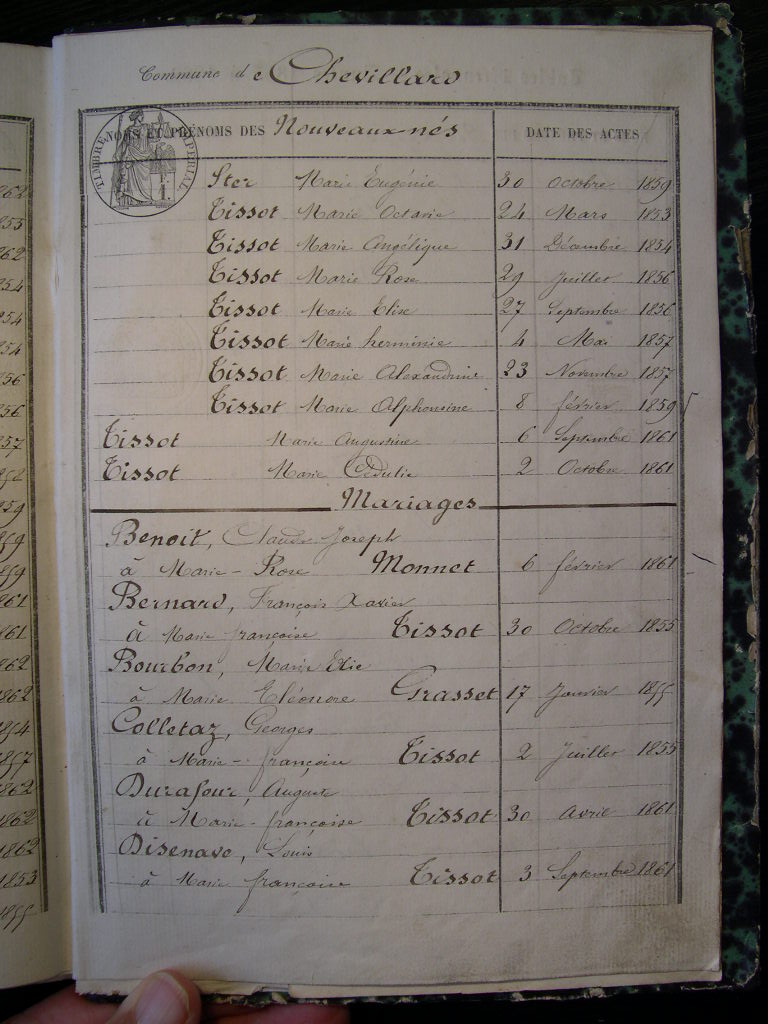 Commune de Chevillard
NOMS ET PRÉNOMS DES Nouveaux-nés DATE DES ACTES
TIMBRE IMPÉRIAL
Ster Marie Eugénie 30 Octobre 1859
Tissot Marie Octavie 24 Mars 1853
Tissot Marie Angélique 31 Décembre 1854
Tissot Marie Rose 29 Juillet 1856
Tissot Marie Elise 27 Septembre 1856
Tissot Marie herminie 4 Mai 1857
Tissot Marie Alexandrine 23 Novembre 1857
Tissot Marie Alphonsine 8 février 1859
Tissot Marie Augustine 6 Septembre 1861
Tissot Marie Cédulie 2 Octobre 1861
Mariages
Benoit, Claude Joseph
à Marie-Rose Monnet 6 février 1861
Bernard, François Xavier
à Marie françoise Tissot 30 Octobre 1855
Bourbon, Marie Elie
à Marie Eléonore Grasset 17 Janvier 1855
Colletaz, Georges
à Marie-françoise Tissot 2 Juillet 1855
Durafour, Auguste
à Marie-françoise Tissot 30 Avril 1861
Disenave, Louis
à Marie françoise Tissot 3 Septembre 1861